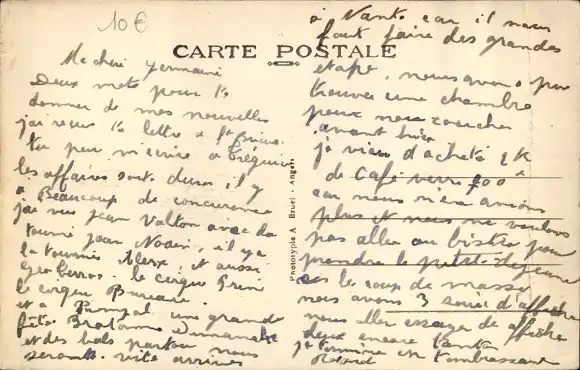 10€
CARTE POSTALE
Ma chère Germaine
Deux mots pour te
donner de mes nouvelles
j'ai reçu ta lettre a St Brieuc
tu peu m'ecrire a Treguier
les affaires sont dures il y
a Beaucoup de concurence
j'ai vus jean Valton avec la
tourné il y a
la tournée et aussi
le cirque
le cirque Bureau
et a une grande
fête Bretonne Dimanche
et des bals partou nous
seront vite arrivés
Phototypie A. Bruel - Angers
à Nantes car il nous
faut faire des grandes
etape, nous avons pu
trouver une chambre
pour nous coucher
avant hier
je viens d'acheté 1 K
de Café vers 400
car nous n'en avions
plus et nous ne voulons
pas aller au bistro pour
prendre le petit dejeuner
le coup de masse
nous avons 3 série d'affiche
nous allons essayer de afficher
deux encore
je termine en t'embrassant